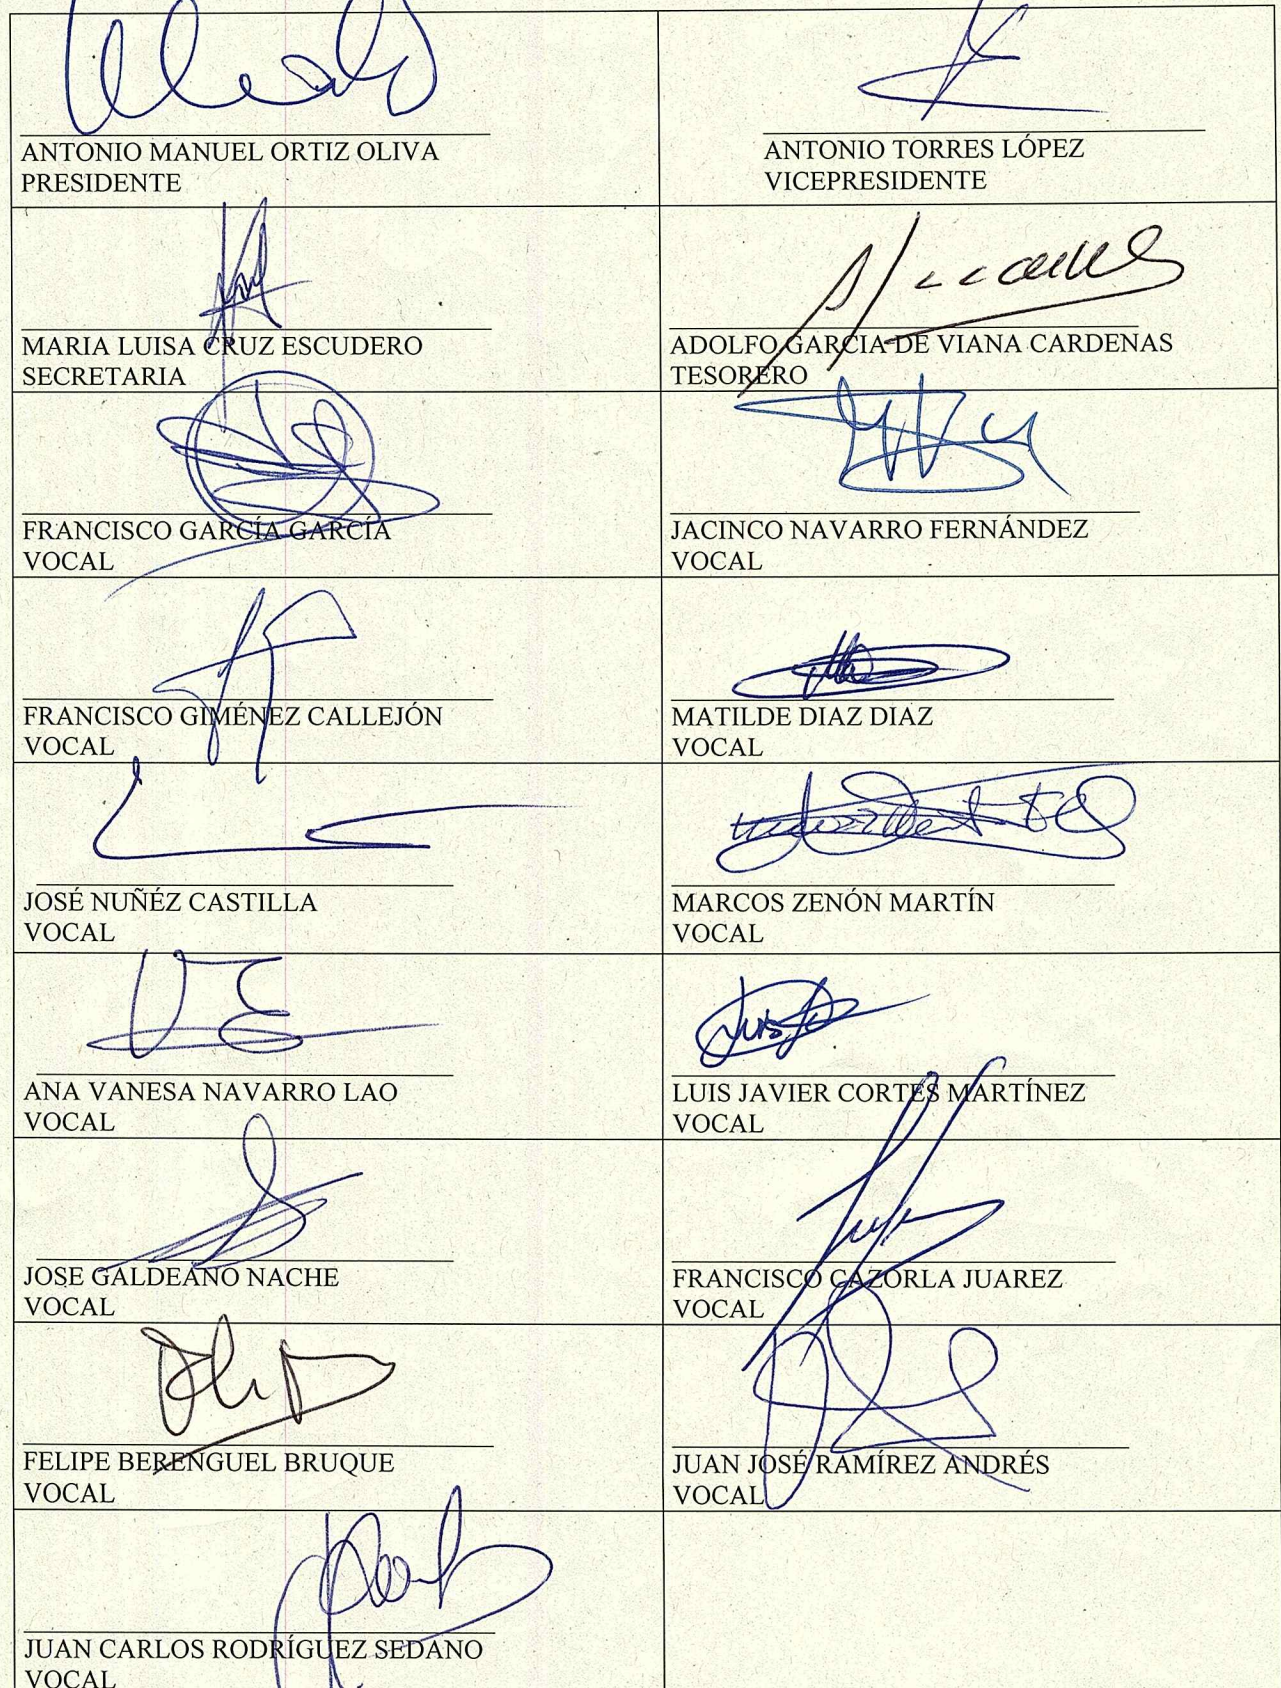 ANTONIO MANUEL ORTIZ OLIVA
PRESIDENTE
ANTONIO TORRES LÓPEZ
VICEPRESIDENTE
MARIA LUISA CRUZ ESCUDERO
SECRETARIA
ADOLFO GARCIA DE VIANA CARDENAS
TESORERO
FRANCISCO GARCÍA GARCÍA
VOCAL
JACINCO NAVARRO FERNÁNDEZ
VOCAL
FRANCISCO GIMÉNEZ CALLEJÓN
VOCAL
MATILDE DIAZ DIAZ
VOCAL
JOSÉ NUÑÉZ CASTILLA
VOCAL
MARCOS ZENÓN MARTÍN
VOCAL
ANA VANESA NAVARRO LAO
VOCAL
Luis
LUIS JAVIER CORTÉS MARTÍNEZ
VOCAL
JOSE GALDEANO NACHE
VOCAL
FRANCISCO CAZORLA JUAREZ
VOCAL
FELIPE BERENGUEL BRUQUE
VOCAL
JUAN JOSÉ RAMÍREZ ANDRÉS
VOCAL
JUAN CARLOS RODRÍGUEZ SEDANO
VOCAL